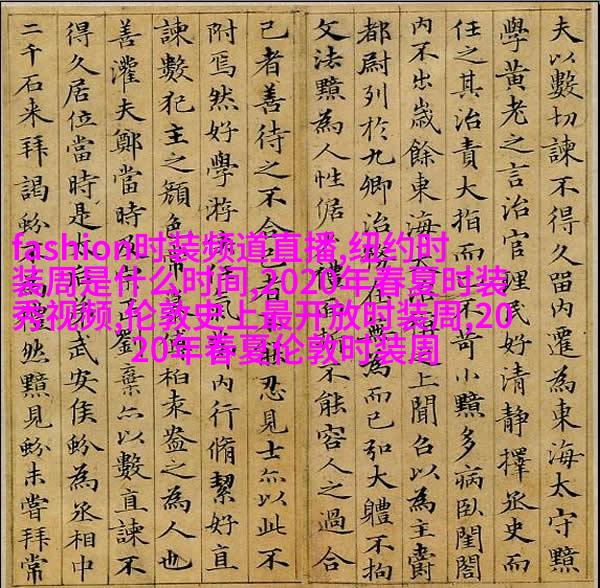 夫以數切諫不得久留內遷為東海太守黯
學黃老之言治官理民好清靜擇丞史而
任之其治責大指而不苛小黯多病臥閨閤
內不出歲餘東海治上聞召以為主爵
都尉列於九卿治務在為而已弘大體不拘
文法黯為人性倨不能容人之過合
己者善待之不合己者忍見士亦以此不
附焉然好學游氣內行脩絜好直
諫數犯主之顏色常慕柏袁盎之為人也
善灌夫鄭當時劉棄亦以數直諫不
得久居位當時是武安侯蚡為丞相中
二千石來拜謁蚡然黯見蚡未嘗拜常
fashion时装频道直播,纽约时
装周是什么时间,2020年春夏时装
秀视频,伦敦史上最开放时装周,20
20年春夏伦敦时装周